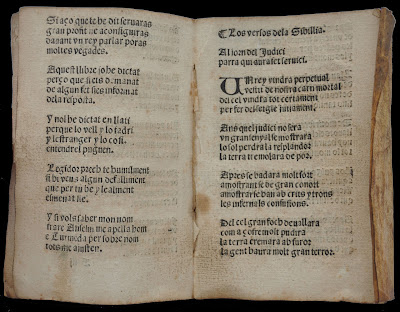 Si aço que te he dit seruaras
gran profit ne aconsiguiras
dauant vn rey parlar poras
moltes vegades.
Aquest libre yo he dictat
perço que siets demanat
de algun fet sies informat
dela resposta.
Y nol he dictat en llati
perque lo vell y lo fadri
lestranger y lo cosi
entendrel puguen.
Legidor prech te humilment
si hi veus algun defalliment
que per tu be y lealment
esmenat sie.
Y si vols saber mon nom
frare Anselm me apella hom
e Turmeda per sobre nom
tots me ajusten.
Los versos dela Sibillia.
Al iorn del Judici
parra qui aura fet seruici.
Un rey vindra perpetual
vestit de nostra carn mortal
del cel vindra tot certament
per fer del setgle iutiament.
Ans quel judici no sera
vn gran senyal se mostrara
lo sol perdra la resplandor
la terra tremolara de por.
Apres se badara molt fort
amostrant se de gran conort
amostrar se han ab crits y trons
les infernals confusions.
Del cel gran foch deuallara
com a sofre molt pudira
la terra cremara ab furor
la gent haura molt gran terror.